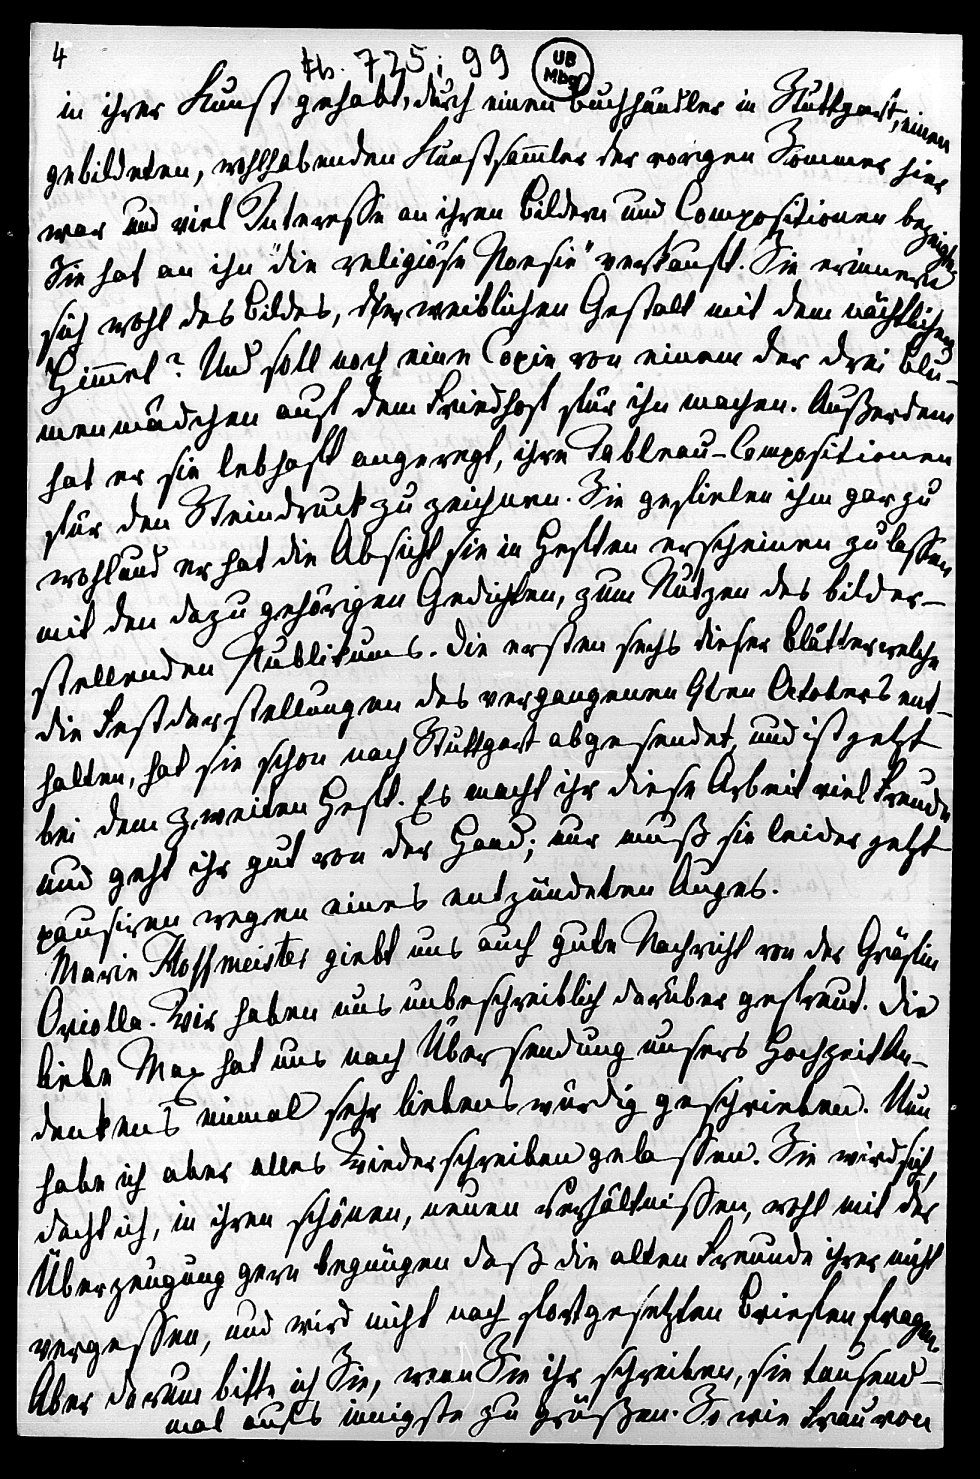 4
Hs. 725; 99
UB Mbg
in ihrer Kunst gehabt, durch einen Buchhändler in Stuttgart, einen
gebildeten, wohlhabenden Kunstsam̄ler der vorigen Sommer hier
war und viel Interesse an ihren Bildern und Compositionen bezeigte.
Sie hat an ihn "die religiöse Poesie" verkauft. Sie erinnern
sich wohl des Bildes, der weiblichen Gestalt mit dem nächtlichen
Him̄el? Und soll noch eine Copie von einem der drei Blu-
menmädchen auf dem Friedhof für ihn machen. Außerdem
hat er sie lebhaft angeregt, ihre Tableau-Compositionen
für den Steindruck zu zeichnen. Sie gefielen ihm gar zu
wohl und er hat die Absicht sie in Heften erscheinen zu lassen
mit den dazu gehörigen Gedichten, zum Nutzen des bilder-
stellenden Publikums. Die ersten sechs dieser Blätter welche
die Festdarstellungen des vergangenen 9ten Octobers ent-
halten, hat sie schon nach Stuttgart abgesendet, und ist jetzt
bei dem zweiten Heft. Es macht ihr diese Arbeit viel Freude
und geht ihr gut von der Hand; nur muß sie leider jetzt
pausiren wegen eines entzündeten Auges.
Marie Hoffmeister giebt uns auch gute Nachricht von der Gräfin
Oriolla. Wir haben uns unbeschreiblich darüber gefreut. Die
liebe Max hat uns nach Übersendung unsers Hochzeit An-
denkens einmal sehr liebenswürdig geschrieben. Nun
habe ich aber alles Wiederschreiben gelassen. Sie wird sich,
dacht ich, in ihren schönen, neuen Verhältnissen, wohl mit der
Überzeugung gern begnügen daß die alten Freunde ihrer nicht
vergessen, und wird nicht nach fortgesetzten Briefen fragen.
Aber darum bitte ich Sie, wenn Sie ihr schreiben, sie tausend-
mal aufs innigste zu grüßen. So wie Frau von